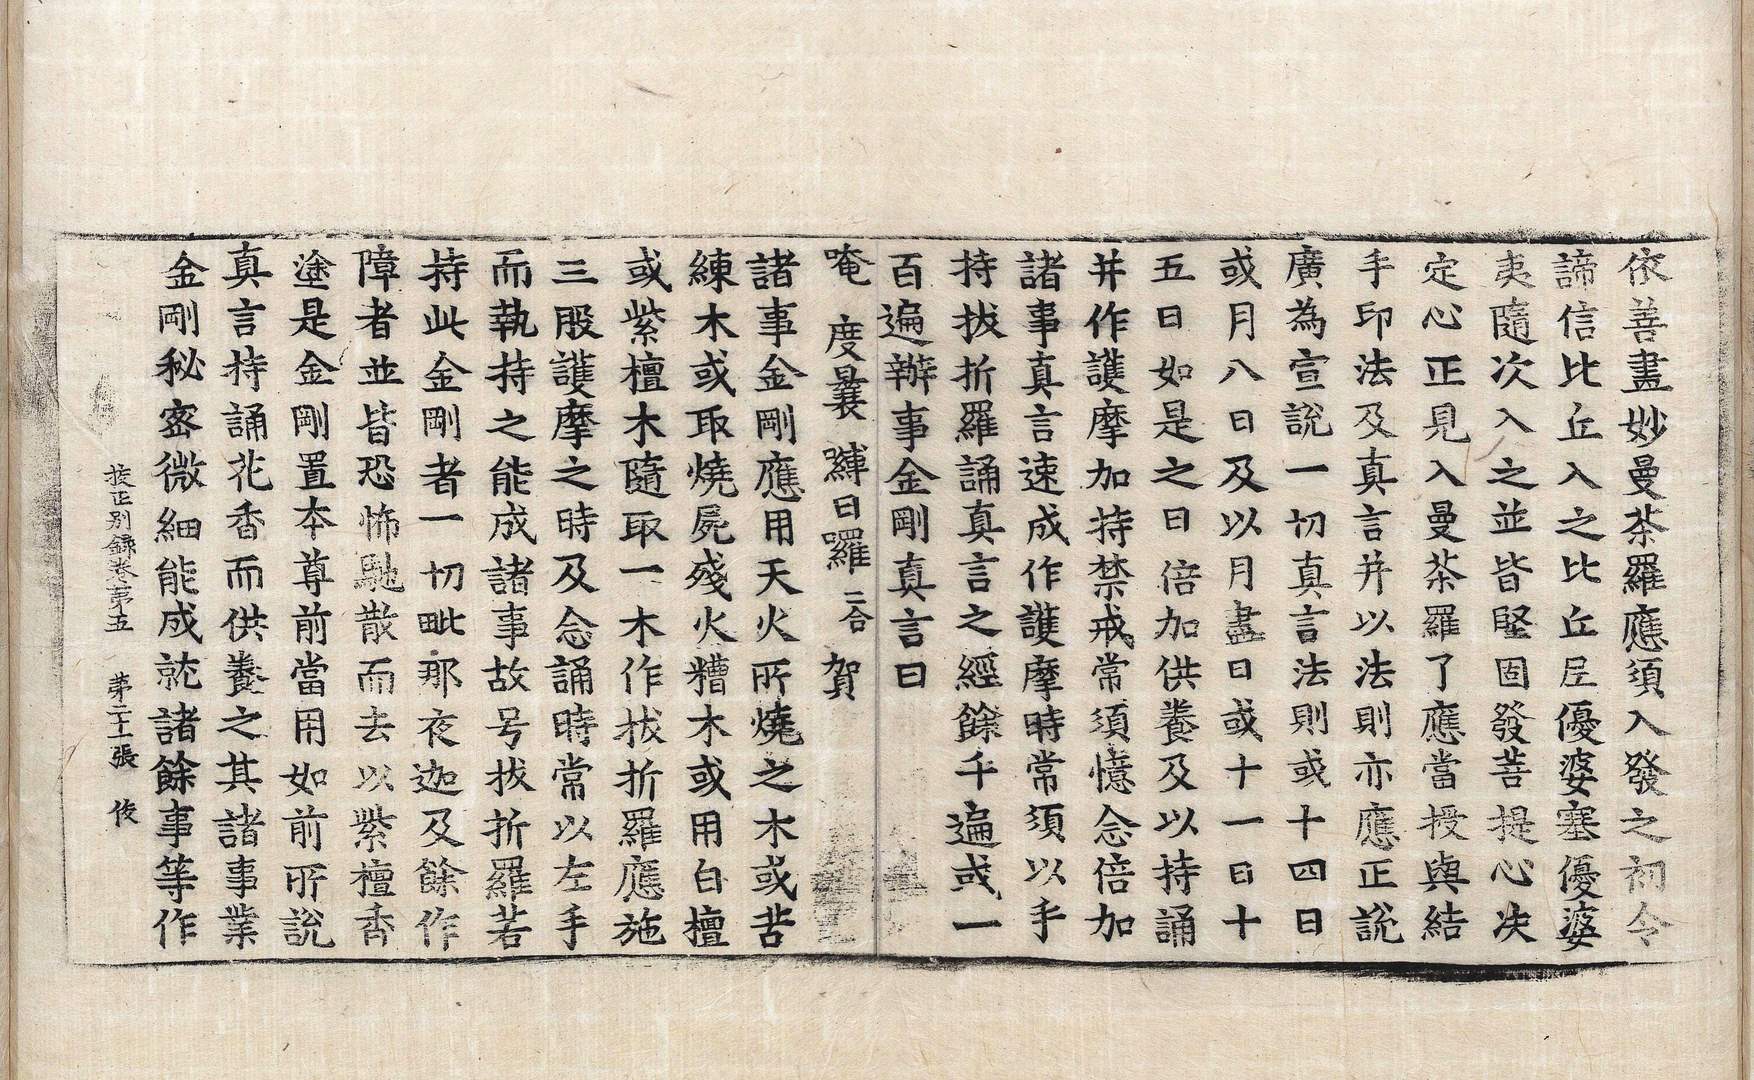 依善畫妙曼茶羅應須入發之初令
諦信比丘入之比丘尼優婆塞優婆
夷隨次入之並皆堅固發菩提心决
定心正見入曼茶羅了應當授與結
手印法及真言并以法則亦應正說
廣為宣說一切真言法則或十四日
或月八日及以月盡日或十一日十
五日如是之日倍加供養及以持誦
并作護摩加持禁戒常須憶念倍加
諸事真言速成作護摩時常須以手
持拔折羅誦真言之經餘千遍或一
百遍辦事金剛真言曰
唵 度曩 縛日囉二合 賀
諸事金剛應用天火所燒之木或苦
練木或取燒屍殘火糟木或用白檀
或紫檀木隨取一木作拔折羅應施
三股護摩之時及念誦時常以左手
而執持之能成諸事故号拔折羅若
持此金剛者一切毗那夜迦及餘作
障者並皆恐怖馳散而去以紫檀香
塗是金剛置本尊前當用如前所說
真言持誦花香而供養之其諸事業
金剛秘密微細能成就諸餘事等作
挍正別録卷第五 第二十張 俊